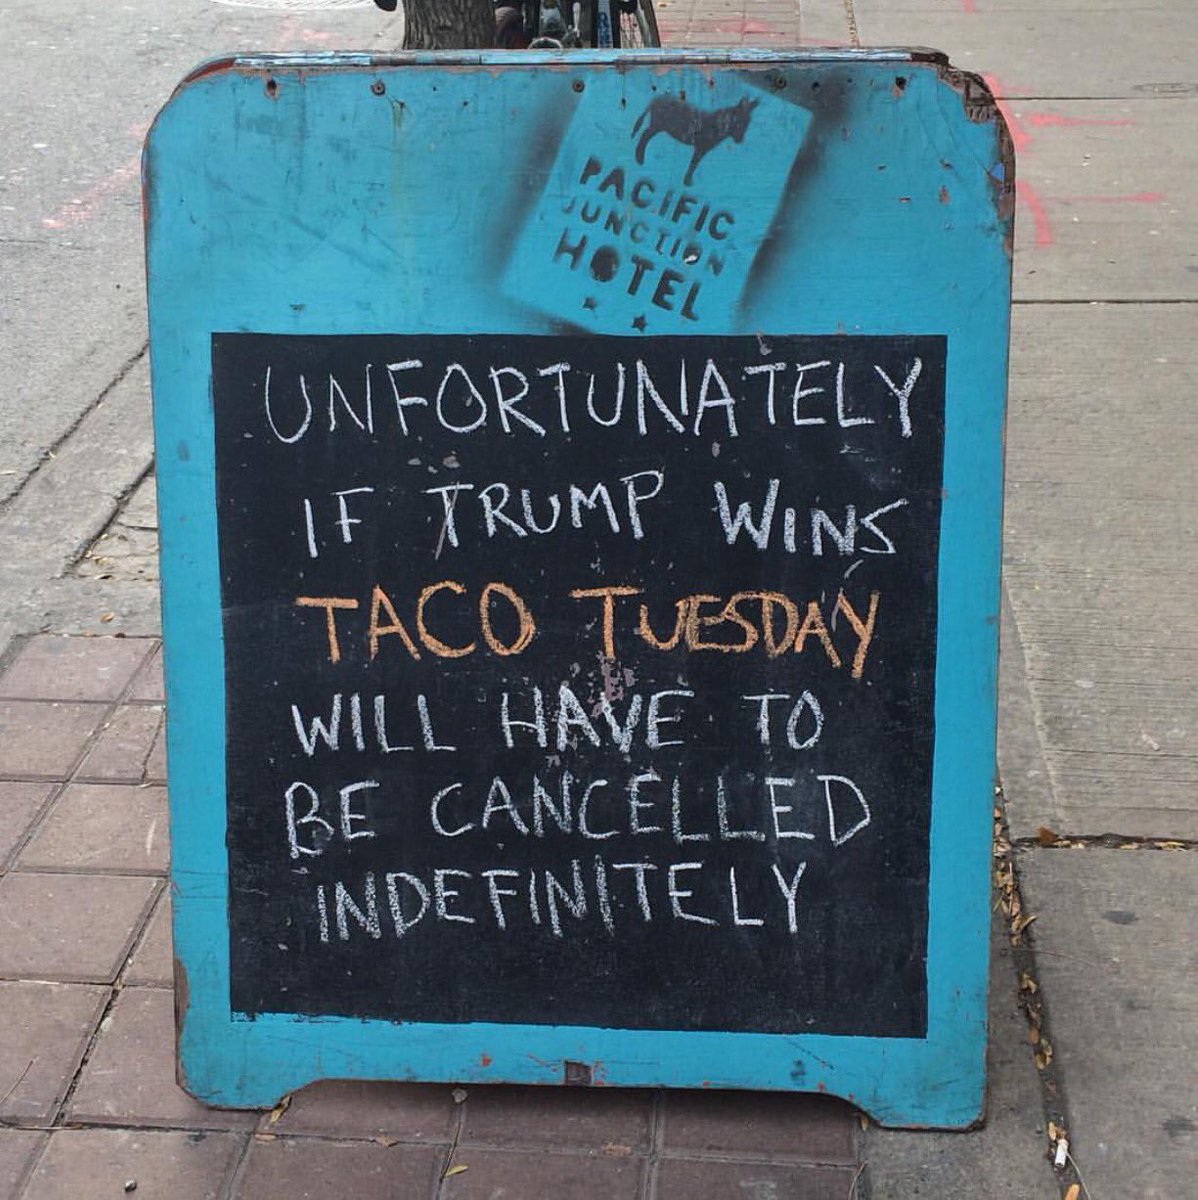 PACIFIC
JUNCTION
HOTEL
UNFORTUNATELY
IF TRUMP WINS
TACO TUESDAY
WILL HAVE TO
BE CANCELLED
INDEFINITELY